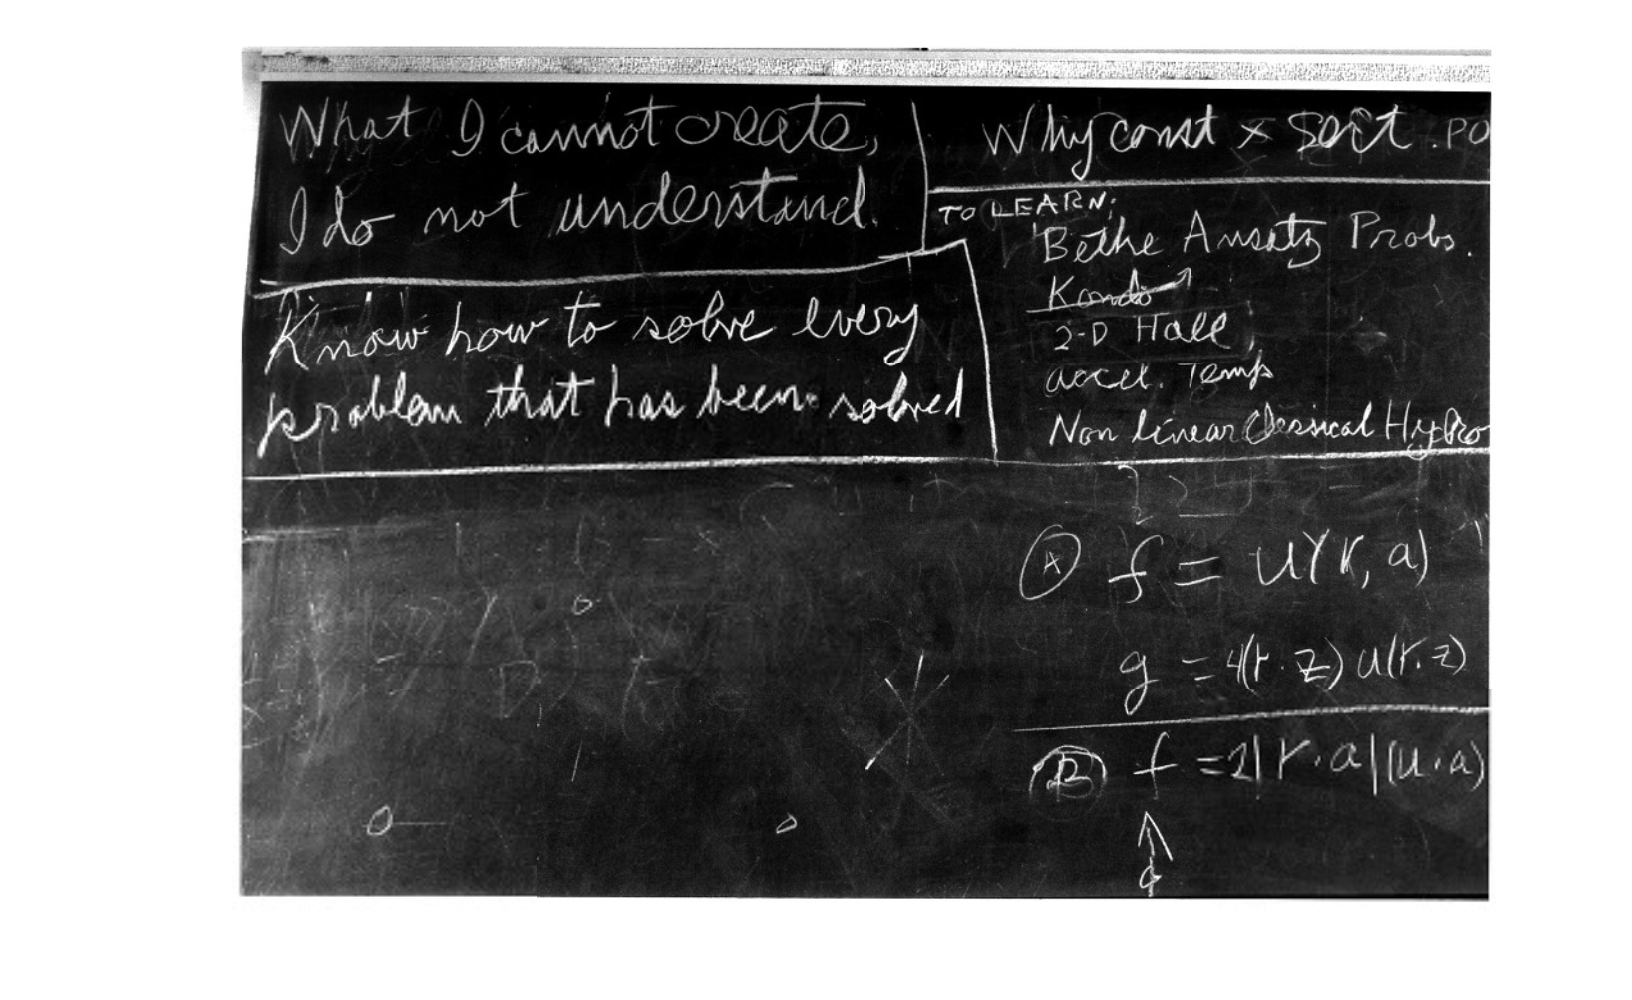 What I cannot create,
I do not understand.
Know how to solve every
problem that has been solved
Why const × sort . PO
TO LEARN:
Bethe Ansatz Probs.
Kondo
2-D Hall
accel. Temp
Non linear Classical Hydro
A f = u(r, a)
g = 4(r · z) u(r. z)
B f = 2|r · a|(u · a)